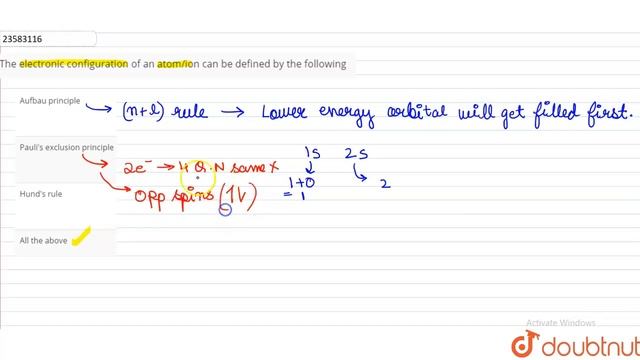 23583116
The electronic configuration of an atom/ion can be defined by the following
Aufbau principle
(n+l) rule → Lower energy orbital will get filled first.
Pauli's exclusion principle
1s 2s
2e⁻ → 4 Q.N same x
1+0 2
Opp spins (1↓)
= 1
Hund's rule
All the above
Activate Windows
doubtnut